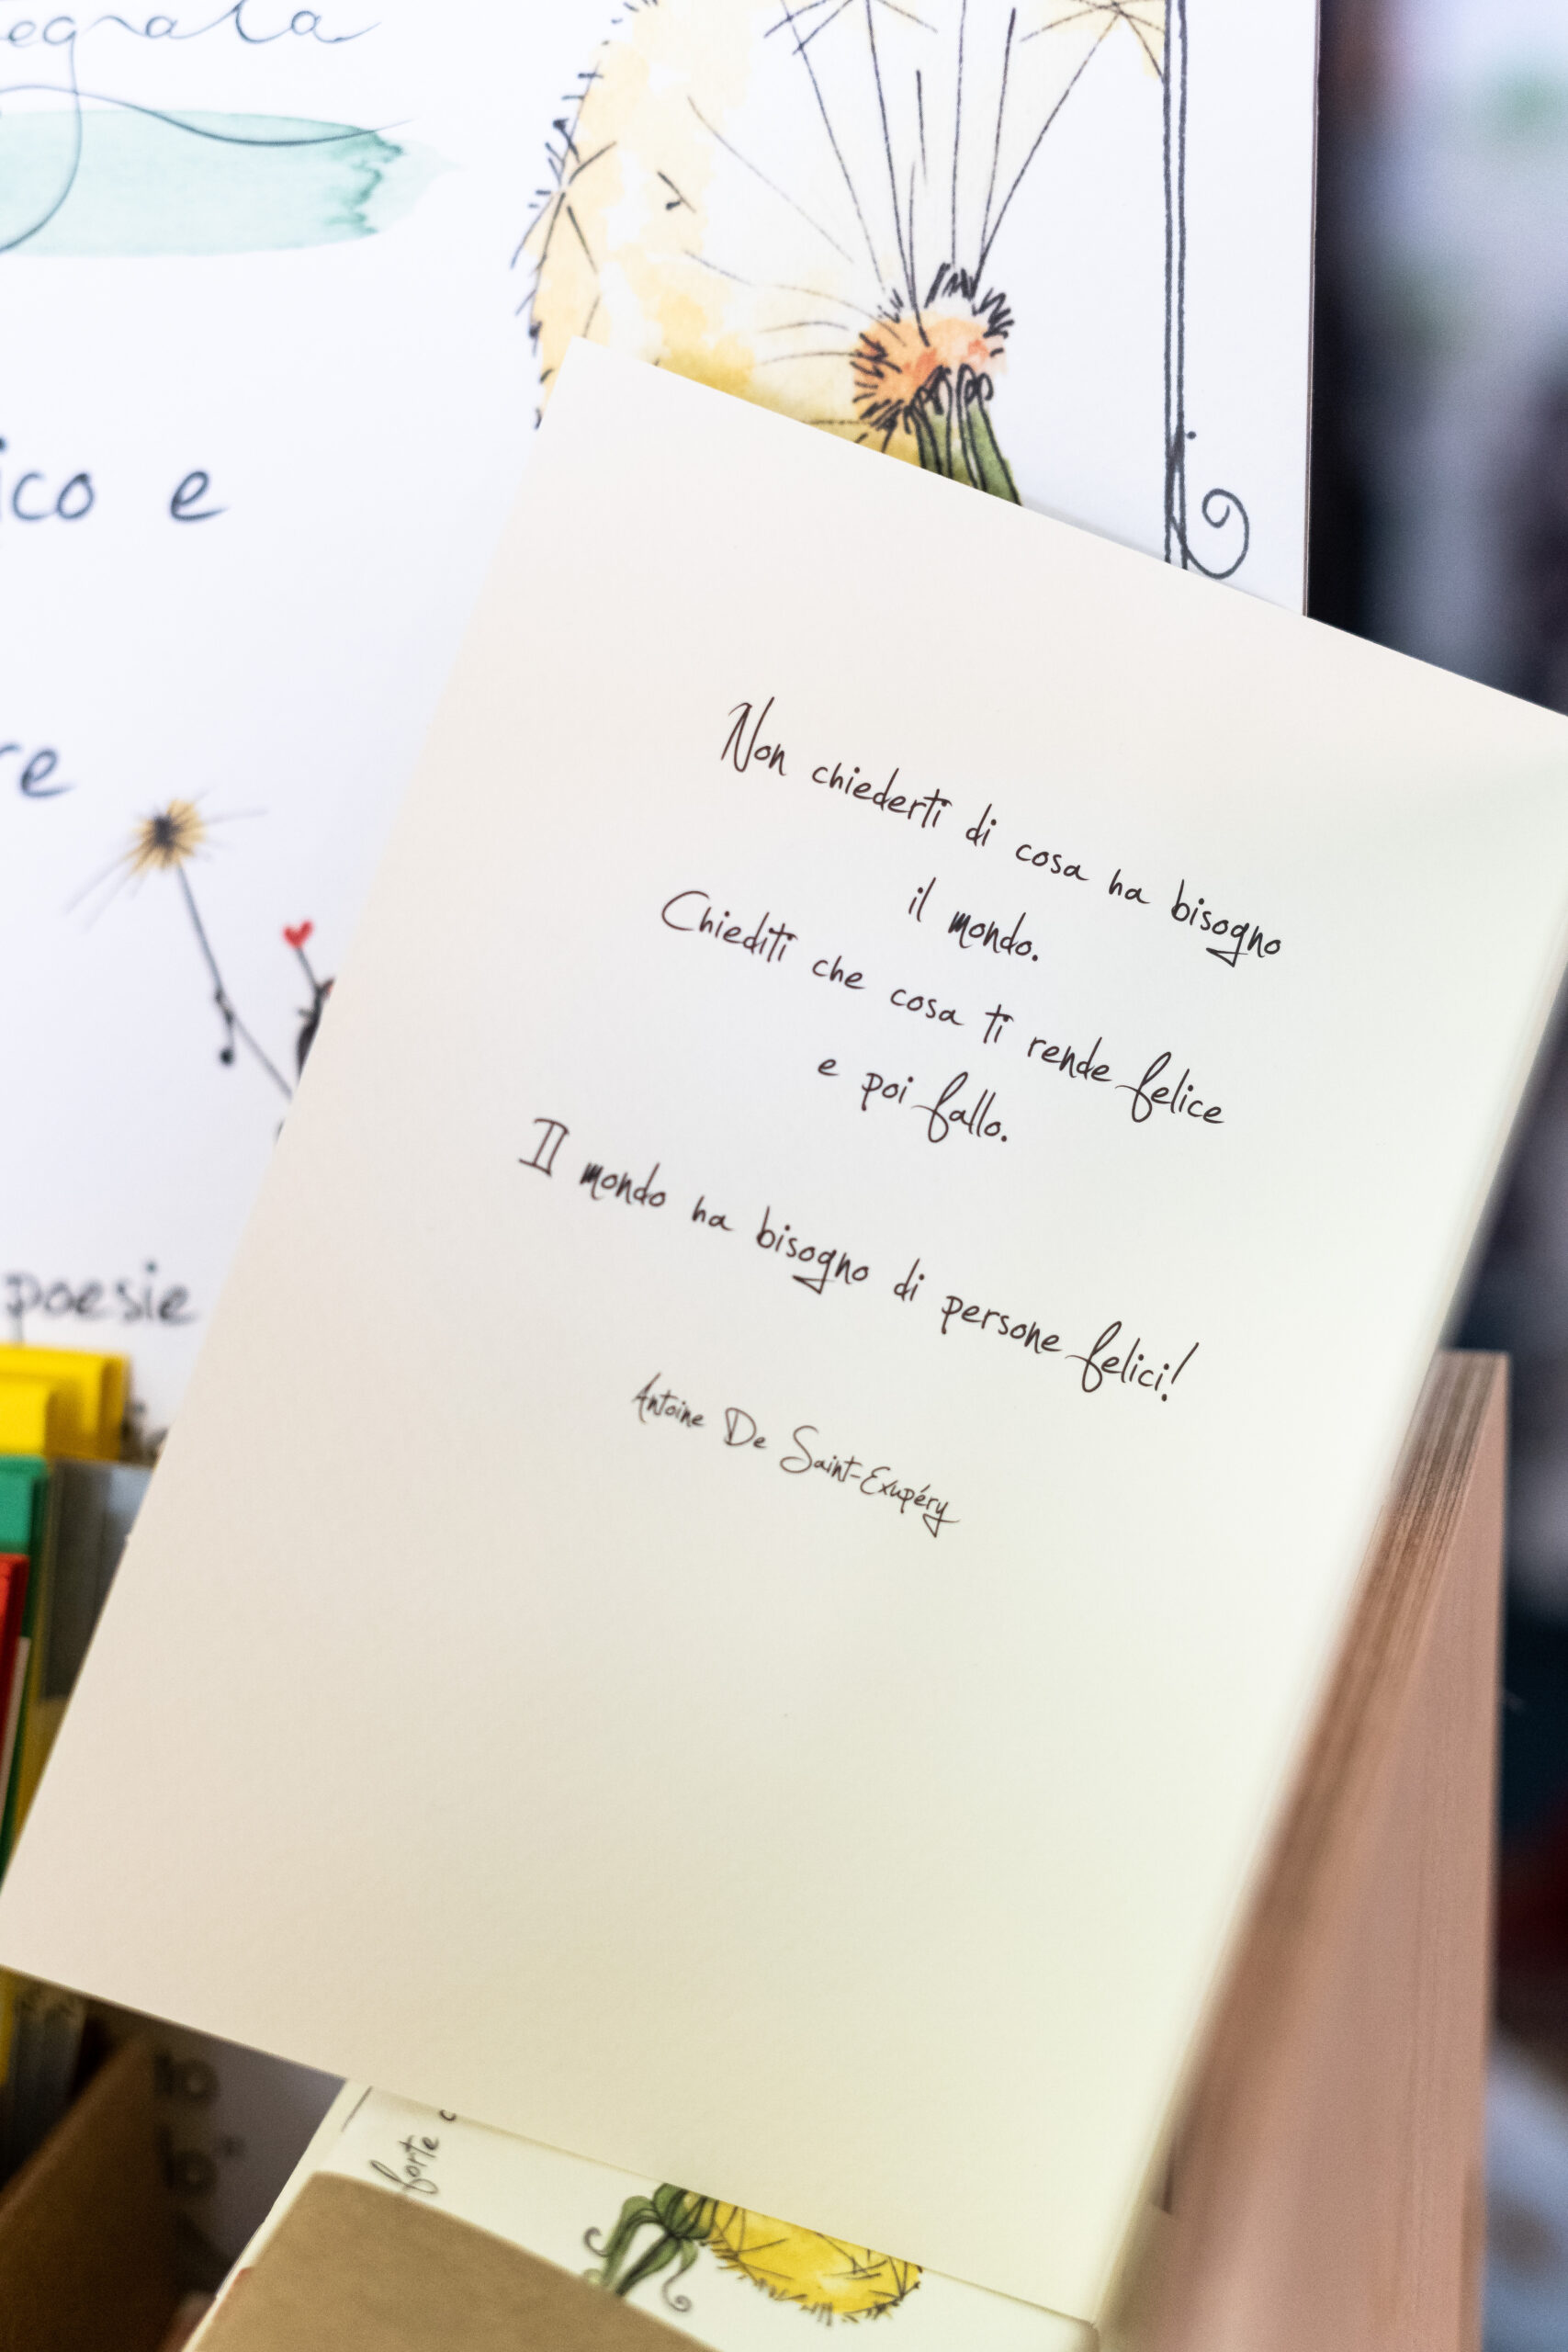 ico e
re
poesie
Non chiederti di cosa ha bisogno
il mondo.
Chiediti che cosa ti rende felice
e poi fallo.
Il mondo ha bisogno di persone felici!
Antoine De Saint-Exupéry
forte